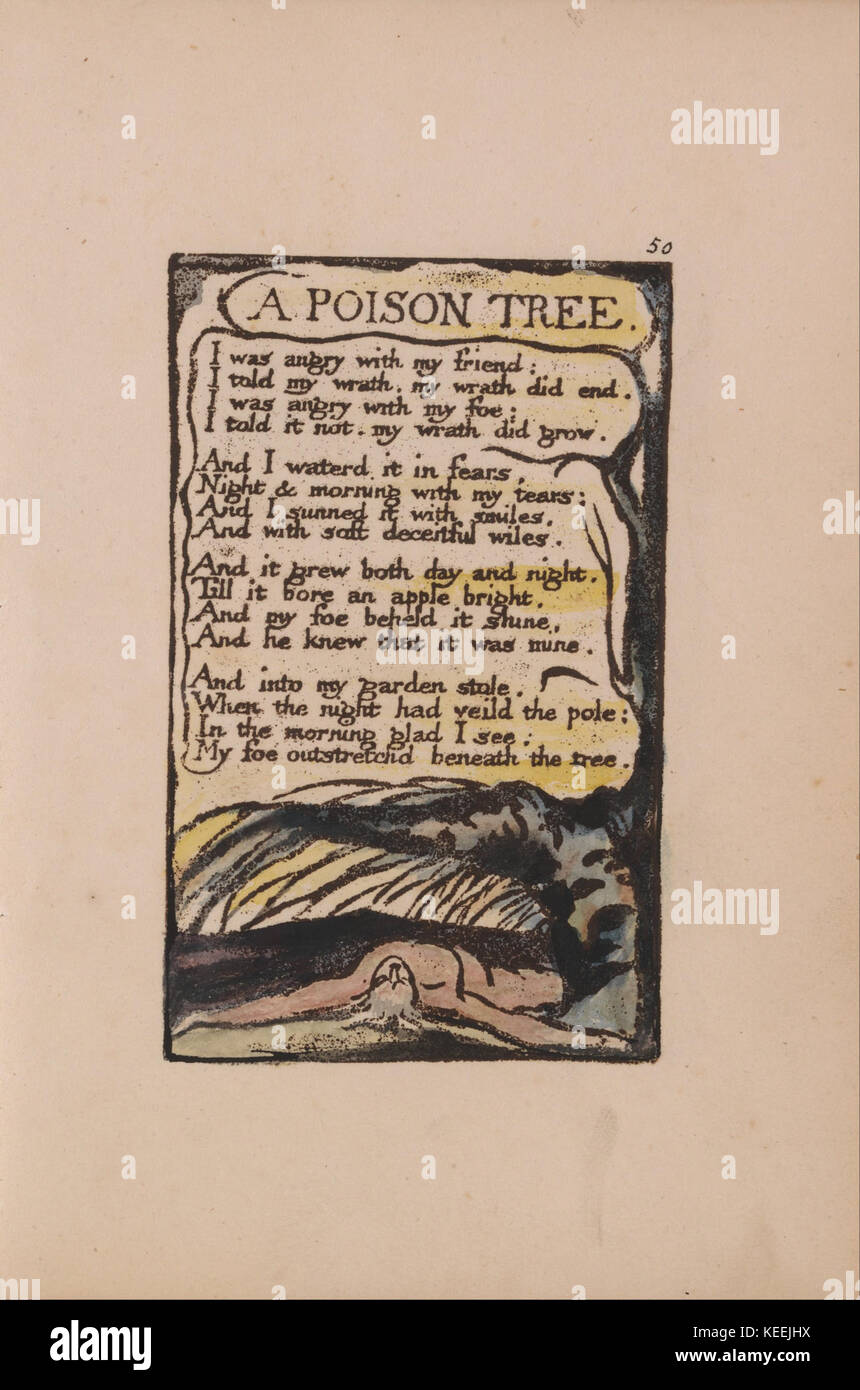 50
A POISON TREE.
I was angry with my friend:
I told my wrath, my wrath did end.
I was angry with my foe:
I told it not, my wrath did grow.
And I waterd it in fears,
Night & morning with my tears:
And I sunned it with smiles,
And with soft deceitful wiles.
And it grew both day and night,
Till it bore an apple bright.
And my foe beheld it shine,
And he knew that it was mine.
And into my garden stole,
When the night had veild the pole;
In the morning glad I see,
My foe outstretchd beneath the tree.
alamy
alamy
alamy
alamy
a
a
a
a
a
a
a
a
a
a
a
alamy
Image ID: KEEJHX
www.alamy.com